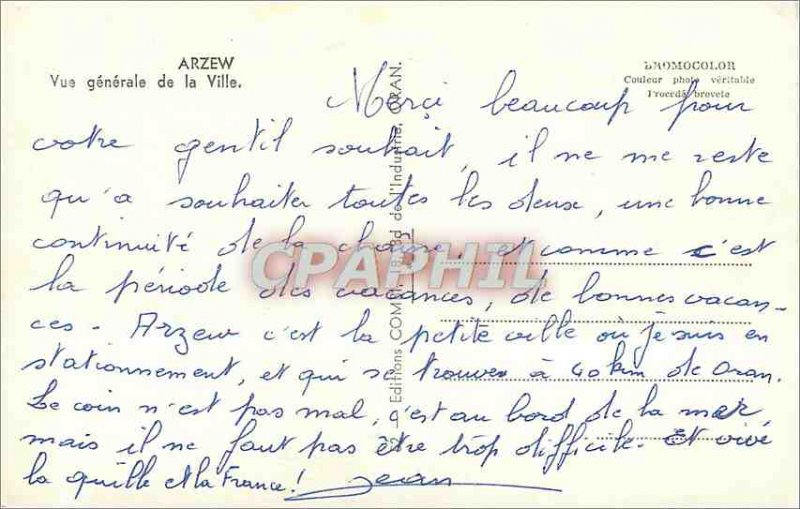 ARZEW
Vue générale de la Ville.
BROMOCOLOR
Couleur photo véritable
Procédé breveté
Merçi beaucoup pour
votre gentil souhait, il ne me reste
qu'a souhaiter toutes les deux, une bonne
continuité de la chose, et comme c'est
la période des vacances, de bonnes vacan-
ces - Arzew c'est la petite ville où je suis en
stationnement, et qui se trouve à 40 km de Oran.
Le coin n'est pas mal, c'est au bord de la mer,
mais il ne faut pas être trop difficile. Et vive
la quille et la France! Jean
Editions COMBIER, Bd de l'Industrie, ORAN.
CPAPHIL